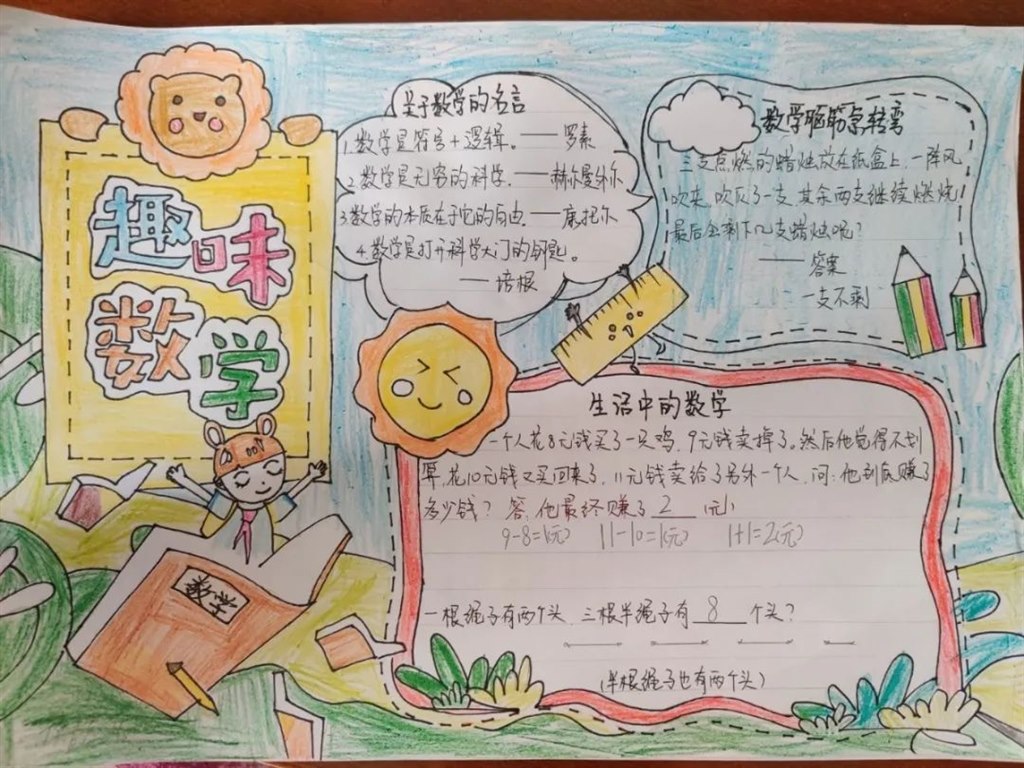 趣味
数学
数学
关于数学的名言
1.数学是符号+逻辑。——罗素
2.数学是无穷的科学.——赫尔曼外尔
3.数学的本质在于它的自由.——康托尔
4.数学是打开科学大门的钥匙。
——培根
数学脑筋急转弯
三支点燃的蜡烛放在纸盒上,一阵风
吹来,吹灭了一支,其余两支继续燃烧
最后会剩下几支蜡烛呢?
——答案
一支不剩
生活中的数学
一个人花8元钱买了一只鸡,9元钱卖掉了。然后他觉得不划
算,花10元钱又买回来了,11元钱卖给了另外一个人,问:他到底赚了
多少钱?答:他最终赚了 2 元!
9-8=1(元) 11-10=1(元) 1+1=2(元)
一根绳子有两个头,三根半绳子有 8 个头?
(半根绳子也有两个头)